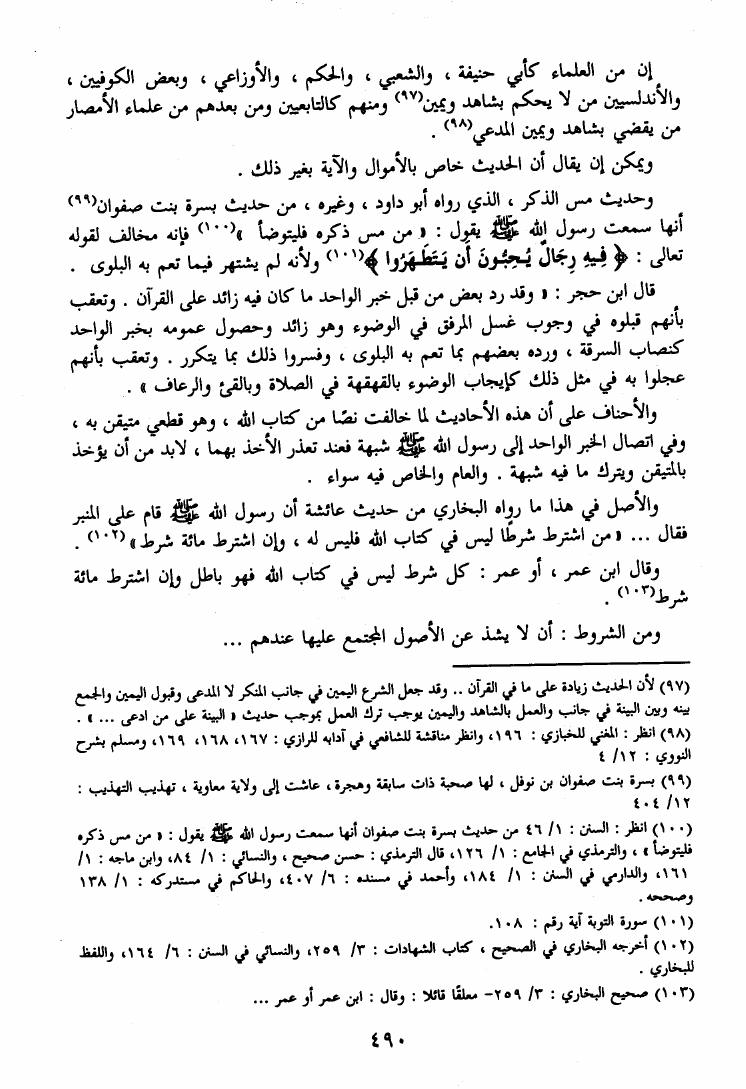 إن من العلماء كأبي حنيفة ، والشعبي ، والحكم ، والأوزاعي ، وبعض الكوفيين ،
والأندلسيين من لا يحكم بشاهد ويمين(٩٧) ومنهم كالتابعيين ومن بعدهم من علماء الأمصار
من يقضي بشاهد ويمين المدعي(٩٨) .
ويمكن إن يقال أن الحديث خاص بالأموال والآية بغير ذلك .
وحديث مس الذكر ، الذي رواه أبو داود ، وغيره ، من حديث بسرة بنت صفوان(٩٩)
أنها سمعت رسول الله ﷺ يقول : « من مس ذكره فليتوضأ »(١٠٠) فإنه مخالف لقوله
تعالى : ﴿ فِيهِ رِجَالٌ يُحِبُّونَ أَن يَتَطَهَّرُوا ﴾(١٠١) ولأنه لم يشتهر فيما تعم به البلوى .
قال ابن حجر : « وقد رد بعض من قبل خبر الواحد ما كان فيه زائد على القرآن . وتعقب
بأنهم قبلوه في وجوب غسل المرفق في الوضوء وهو زائد وحصول عمومه بخبر الواحد
كنصاب السرقة ، ورده بعضهم بما تعم به البلوى ، وفسروا ذلك بما يتكرر . وتعقب بأنهم
عجلوا به في مثل ذلك كإيجاب الوضوء بالقهقهة في الصلاة وبالقئ والرعاف » .
والأحناف على أن هذه الأحاديث لما خالفت نصًا من كتاب الله ، وهو قطعي متيقن به ،
وفي اتصال الخبر الواحد إلى رسول الله ﷺ شبهة فعند تعذر الأخذ بهما ، لابد من أن يؤخذ
بالمتيقن ويترك ما فيه شبهة . والعام والخاص فيه سواء .
والأصل في هذا ما رواه البخاري من حديث عائشة أن رسول الله ﷺ قام على المنبر
فقال ... « من اشترط شرطًا ليس في كتاب الله فليس له ، وإن اشترط مائة شرط »(١٠٢) .
وقال ابن عمر ، أو عمر : كل شرط ليس في كتاب الله فهو باطل وإن اشترط مائة
شرط(١٠٣) .
ومن الشروط : أن لا يشذ عن الأصول المجتمع عليها عندهم ...
(٩٧) لأن الحديث زيادة على ما في القرآن .. وقد جعل الشرع اليمين في جانب المنكر لا المدعى وقبول اليمين والجمع
بينه وبين البينة في جانب والعمل بالشاهد واليمين يوجب ترك العمل بموجب حديث « البينة على من ادعى ... » .
(٩٨) انظر : المغني للخبازي : ١٩٦، وانظر مناقشة للشافعي في آدابه للرازي : ١٦٧، ١٦٨، ١٦٩، ومسلم بشرح
النووي : ١٢/ ٤
(٩٩) بسرة بنت صفوان بن نوفل ، لها صحبة ذات سابقة وهجرة، عاشت إلى ولاية معاوية ، تهذيب التهذيب :
١٢/ ٤٠٤
(١٠٠) انظر : السنن : ١/ ٤٦ من حديث بسرة بنت صفوان أنها سمعت رسول الله ﷺ يقول : « من مس ذكره
فليتوضأ » ، والترمذي في الجامع : ١/ ١٢٦، قال الترمذي : حسن صحيح ، والنسائي : ١/ ٨٤، وابن ماجه : ١/
١٦١، والدارمي في السنن : ١/ ١٨٤، وأحمد في مسنده : ٦/ ٤٠٧، والحاكم في مستدركه : ١/ ١٣٨
وصححه .
(١٠١) سورة التوبة آية رقم : ١٠٨.
(١٠٢) أخرجه البخاري في الصحيح ، كتاب الشهادات : ٣/ ٢٥٩، والنسائي في السنن : ٦/ ١٦٤، واللفظ
للبخاري .
(١٠٣) صحيح البخاري : ٣/ ٢٥٩- معلقًا قائلا : وقال : ابن عمر أو عمر ...
٤٩٠